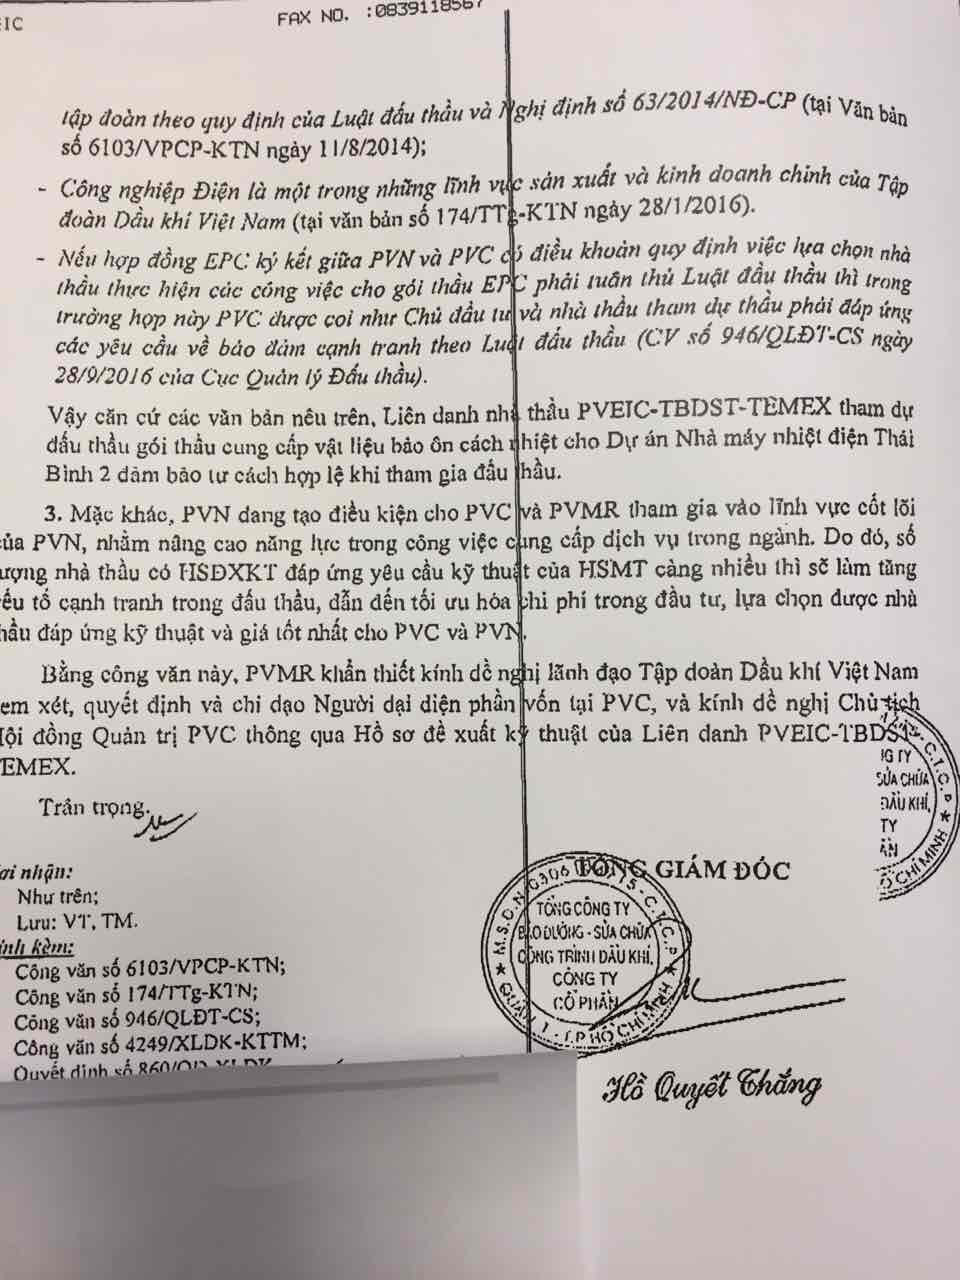 EIC
FAX NO. :0839118567
tập đoàn theo quy định của Luật đấu thầu và Nghị định số 63/2014/NĐ-CP (tại Văn bản
số 6103/VPCP-KTN ngày 11/8/2014);
- Công nghiệp Điện là một trong những lĩnh vực sản xuất và kinh doanh chính của Tập
đoàn Dầu khí Việt Nam (tại văn bản số 174/TTg-KTN ngày 28/1/2016).
- Nếu hợp đồng EPC ký kết giữa PVN và PVC có điều khoản quy định việc lựa chọn nhà
thầu thực hiện các công việc cho gói thầu EPC phải tuân thủ Luật đấu thầu thì trong
trường hợp này PVC được coi như Chủ đầu tư và nhà thầu tham dự thầu phải đáp ứng
các yêu cầu về bảo đảm cạnh tranh theo Luật đấu thầu (CV số 946/QLĐT-CS ngày
28/9/2016 của Cục Quản lý Đấu thầu).
Vậy căn cứ các văn bản nêu trên, Liên danh nhà thầu PVEIC-TBDST-TEMEX tham dự
đấu thầu gói thầu cung cấp vật liệu bảo ôn cách nhiệt cho Dự án Nhà máy nhiệt điện Thái
Bình 2 đảm bảo tư cách hợp lệ khi tham gia đấu thầu.
3. Mặc khác, PVN đang tạo điều kiện cho PVC và PVMR tham gia vào lĩnh vực cốt lõi
của PVN, nhằm nâng cao năng lực trong công việc cung cấp dịch vụ trong ngành. Do đó, số
ượng nhà thầu có HSĐXKT đáp ứng yêu cầu kỹ thuật của HSMT càng nhiều thì sẽ làm tăng
yếu tố cạnh tranh trong đấu thầu, dẫn đến tối ưu hóa chi phí trong đầu tư, lựa chọn được nhà
hầu đáp ứng kỹ thuật và giá tốt nhất cho PVC và PVN.
Bằng công văn này, PVMR khẩn thiết kính đề nghị lãnh đạo Tập đoàn Dầu khí Việt Nam
em xét, quyết định và chỉ đạo Người đại diện phần vốn tại PVC, và kính đề nghị Chủ tịch
ội đồng Quản trị PVC thông qua Hồ sơ đề xuất kỹ thuật của Liên danh PVEIC-TBDST-
TEMEX.
NG TY
SỬA CHỮA
DẦU KHÍ,
TY
ẦN
C.T.C.P ★ HỒ CHÍ MINH
Trân trọng.
ơi nhận:
Như trên;
Lưu: VT, TM.
ính kèm:
Công văn số 6103/VPCP-KTN;
Công văn số 174/TTg-KTN;
Công văn số 946/QLĐT-CS;
Công văn số 4249/XLDK-KTTM;
Quyết định số 860/QĐ-XLDK
TỔNG GIÁM ĐỐC
M.S.D.N 0306 - C.T.C.P
TỔNG CÔNG TY
BẢO DƯỠNG - SỬA CHỮA
CÔNG TRÌNH DẦU KHÍ,
CÔNG TY
CỔ PHẦN
★ QUẬN 1 - T.P HỒ CHÍ MINH ★
Hồ Quyết Thắng